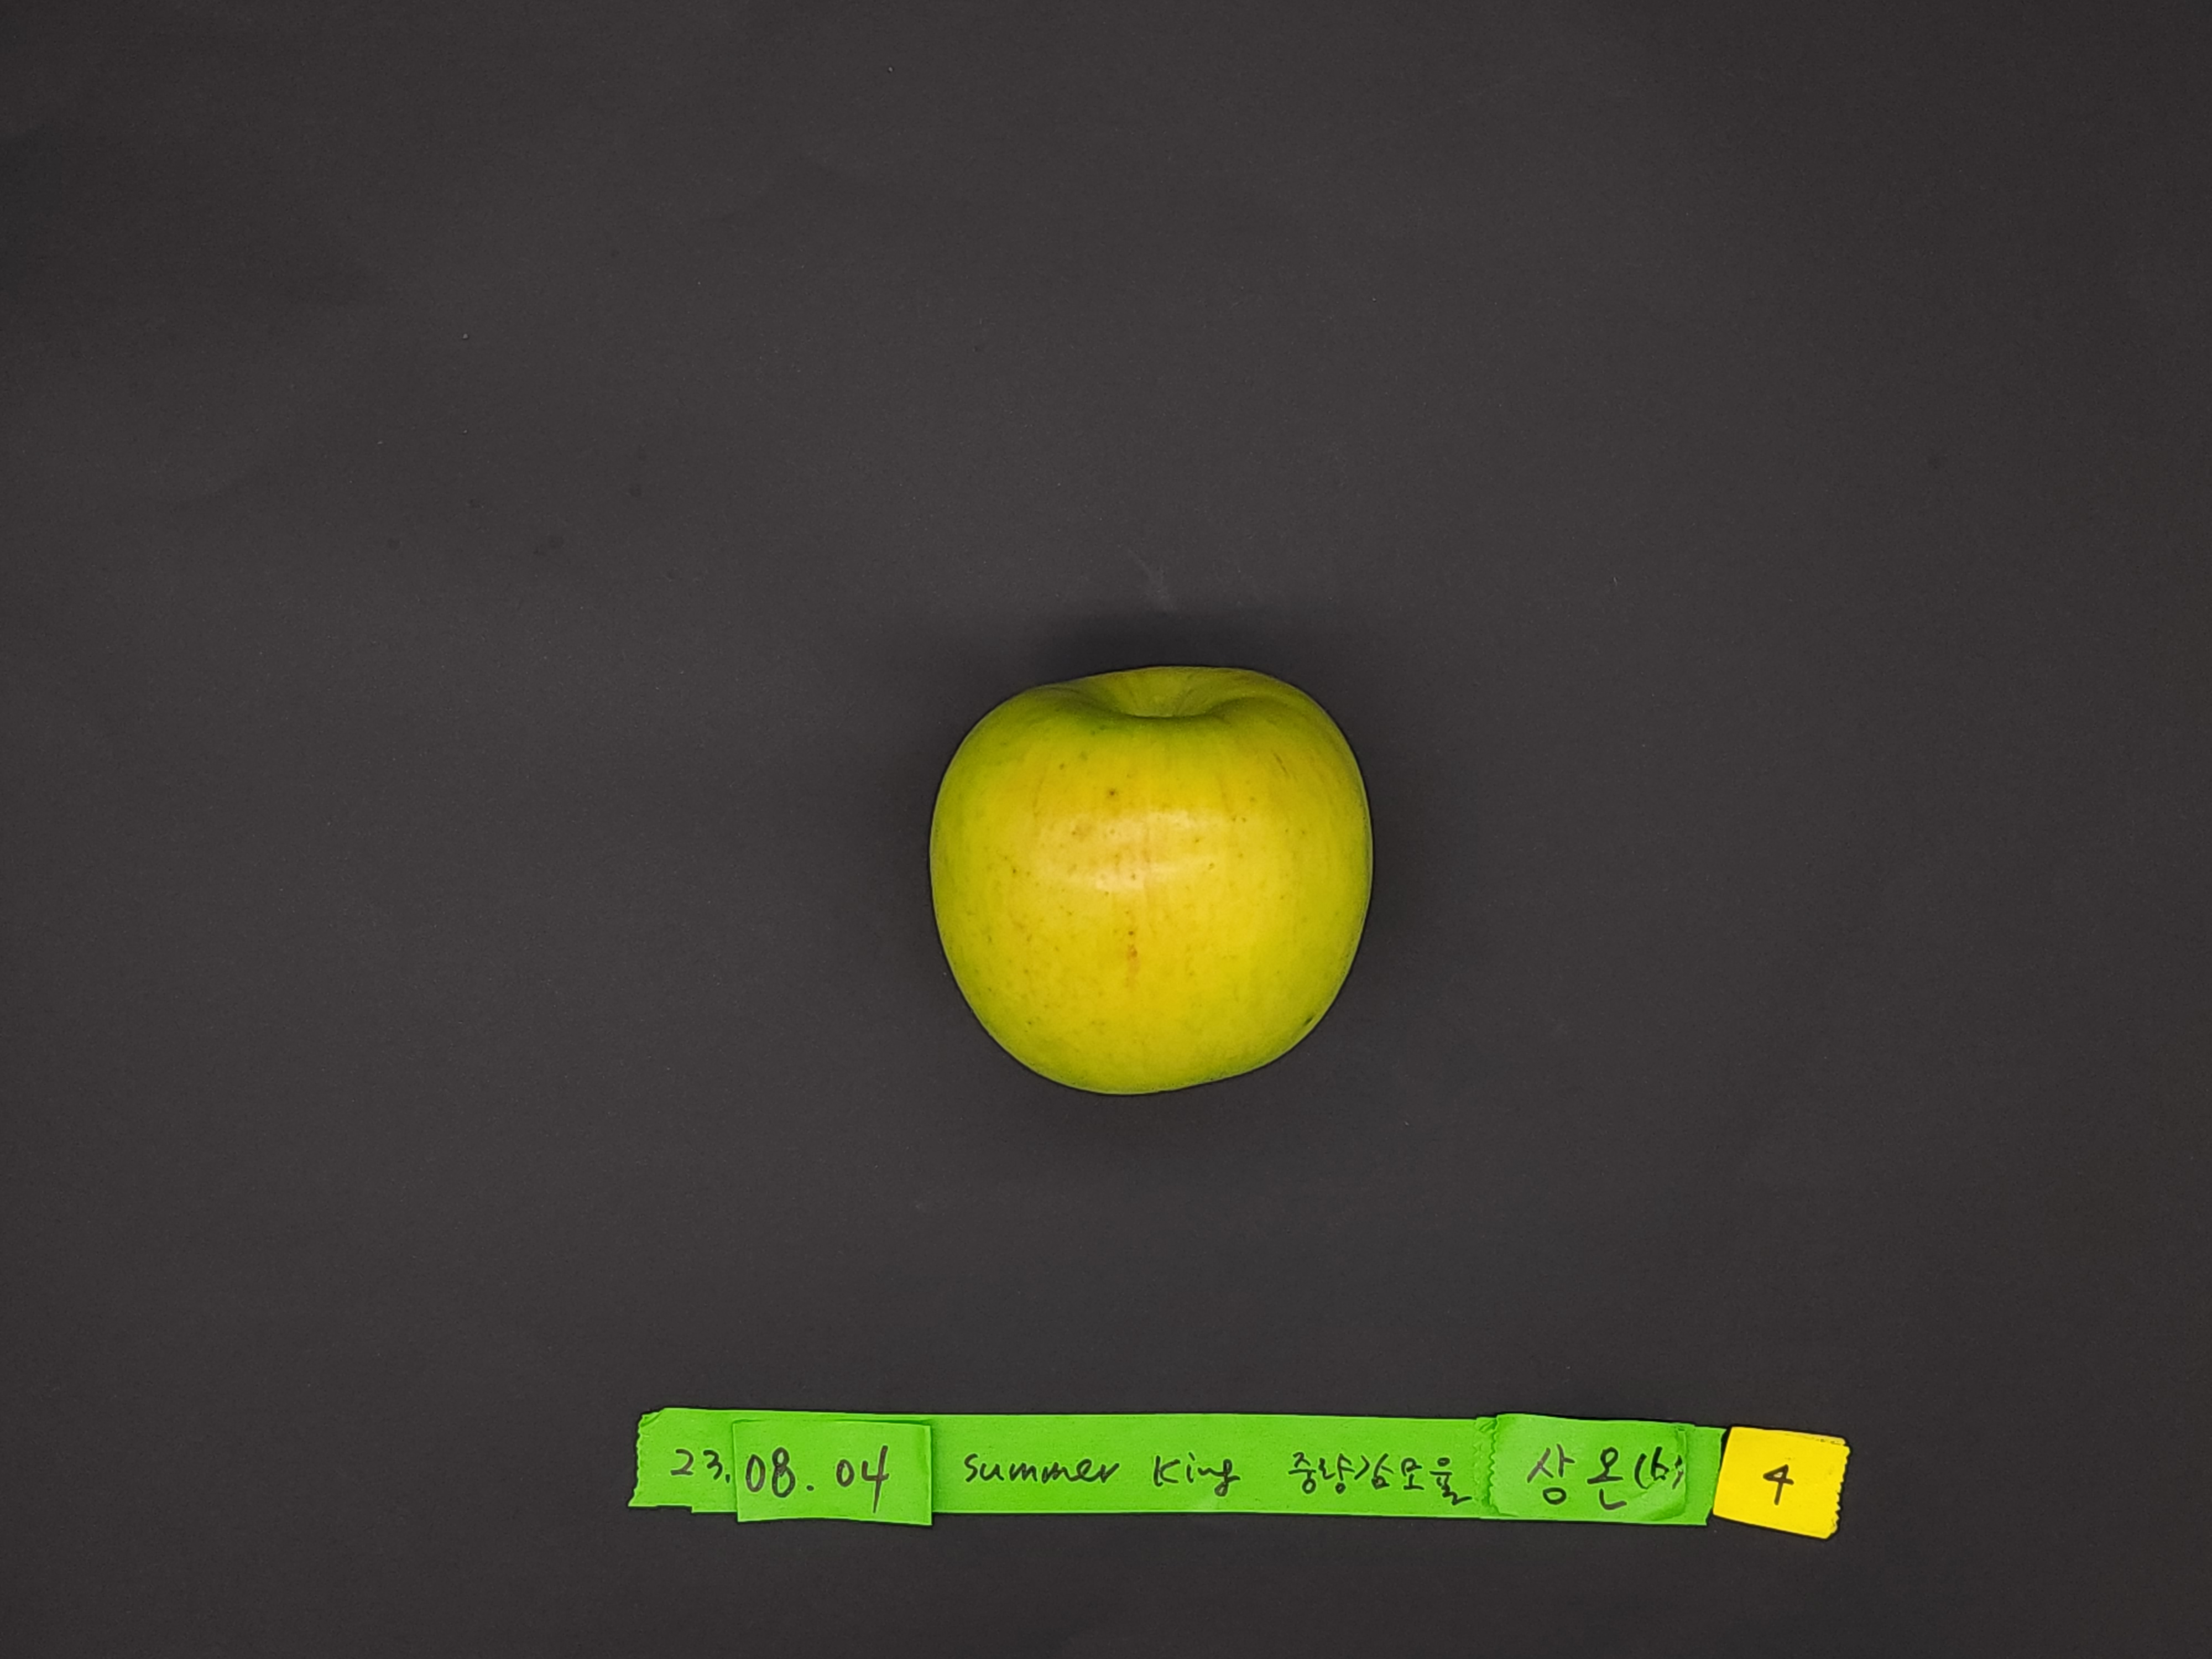 23.08.04 Summer King 중량감모율 상온(b) 4